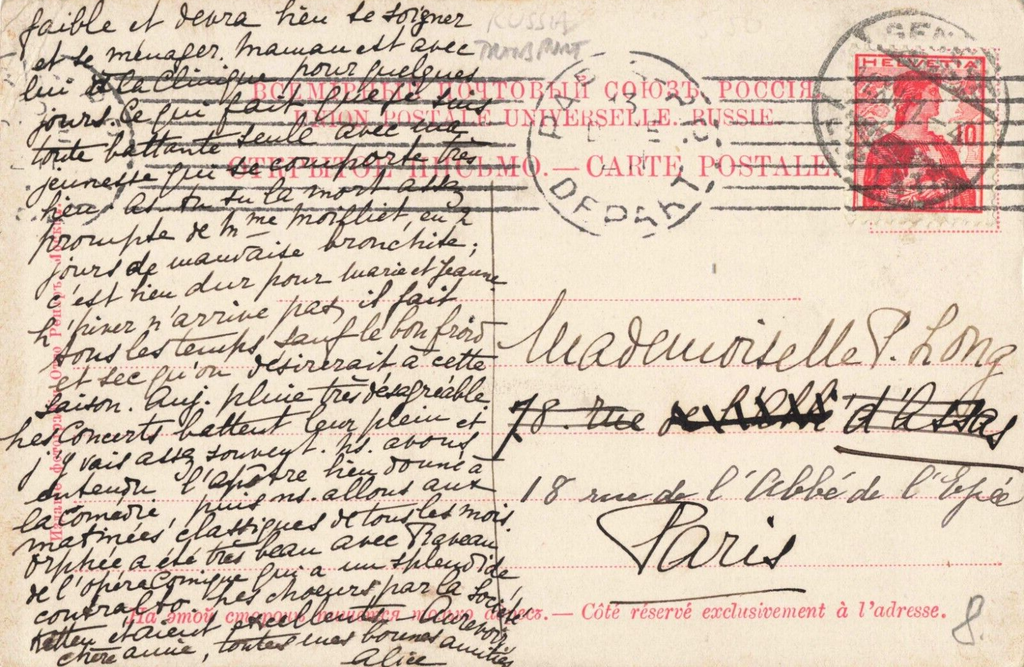 faible et devra bien se soigner
et se ménager. Maman est avec
lui à la Clinique pour quelques
jours. Ce qui fait que je suis
toute battante seule avec ma
jeunesse qui se comporte très
bien. As-tu su la mort assez
prompte de Mme Moilliet, en 2
jours de mauvaise bronchite;
c'est bien dur pour Marie et Jeanne
L'hiver n'arrive pas, il fait
tous les temps, sauf le bon froid
et sec qu'on désirerait à cette
saison. Auj. pluie très désagréable
Les Concerts battent leur plein et
j'y vais assez souvent. Ns. avons
entendu l'apôtre bien donné à
la Comédie, puis ns. allons aux
matinées classiques de tous les mois.
Orphée a été très beau avec Raveau
de l'opéra Comique qui a un splendide
contralto. Les choeurs par la Société
étaient excellents. Au revoir
chère amie, toutes mes bonnes amitiés
Alice
RUSSIA
TRANSPORT
ВСЕМІРНЫЙ ПОЧТОВЫЙ СОЮЗЪ. РОССІЯ
UNION POSTALE UNIVERSELLE. RUSSIE
ОТКРЫТОЕ ПИСЬМО. — CARTE POSTALE
PARIS
DEPART
HELVETIA
10
Mademoiselle P. Long
78. rue d'Assas
18 rue de l'Abbé de l'Epée
Paris
На этой сторонѣ пишется только адресъ. — Côté réservé exclusivement à l'adresse.
8.